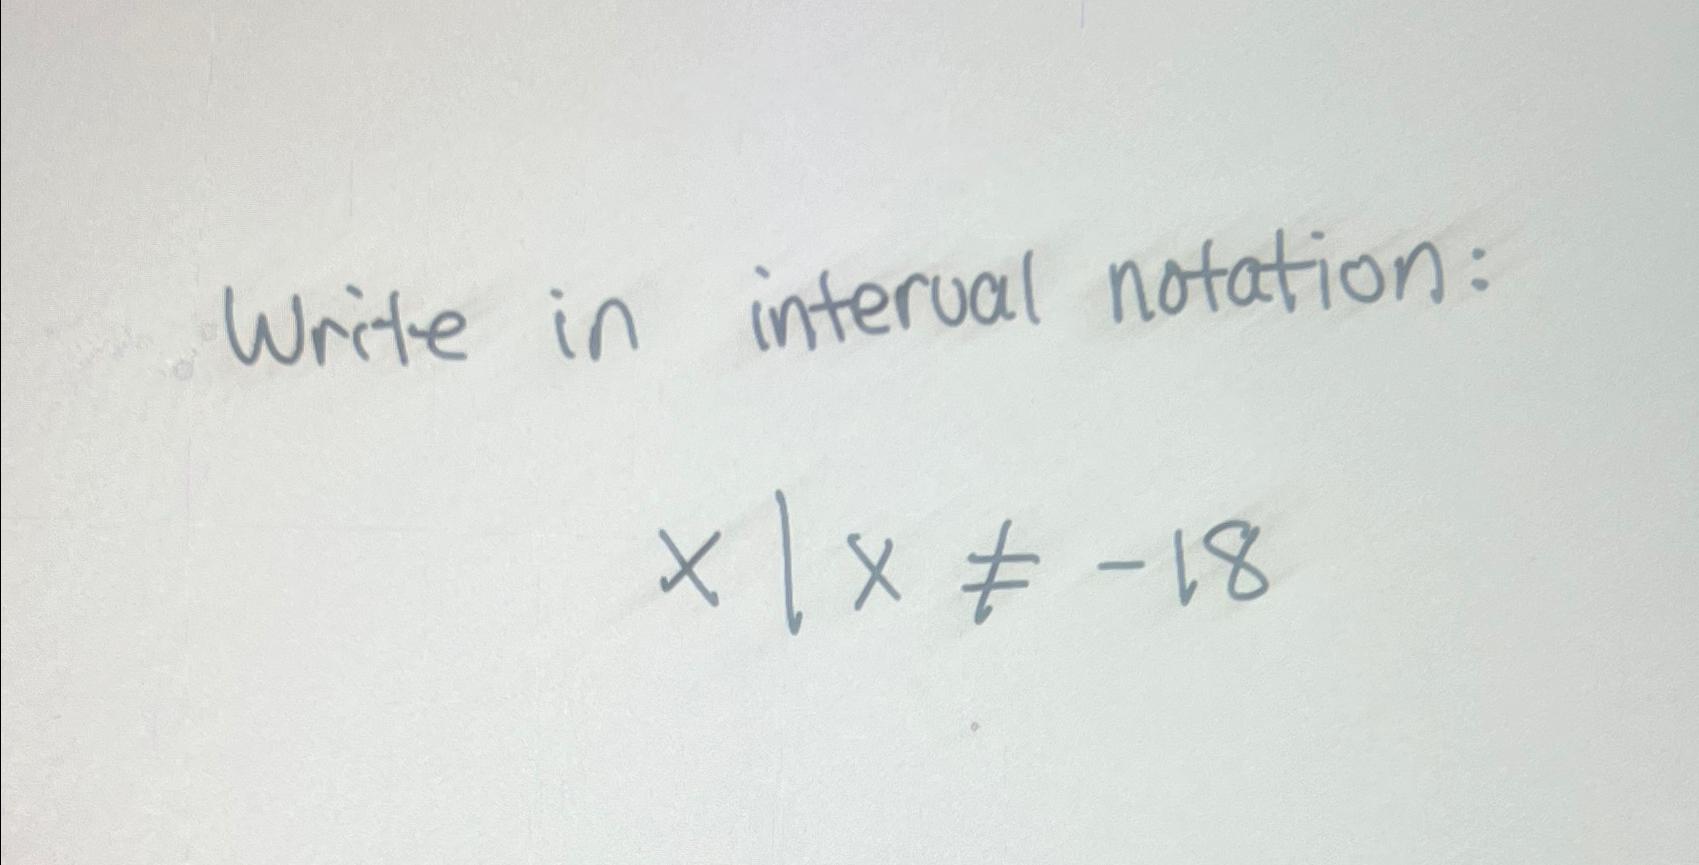 Write in interval notation:
x | x ≠ -18